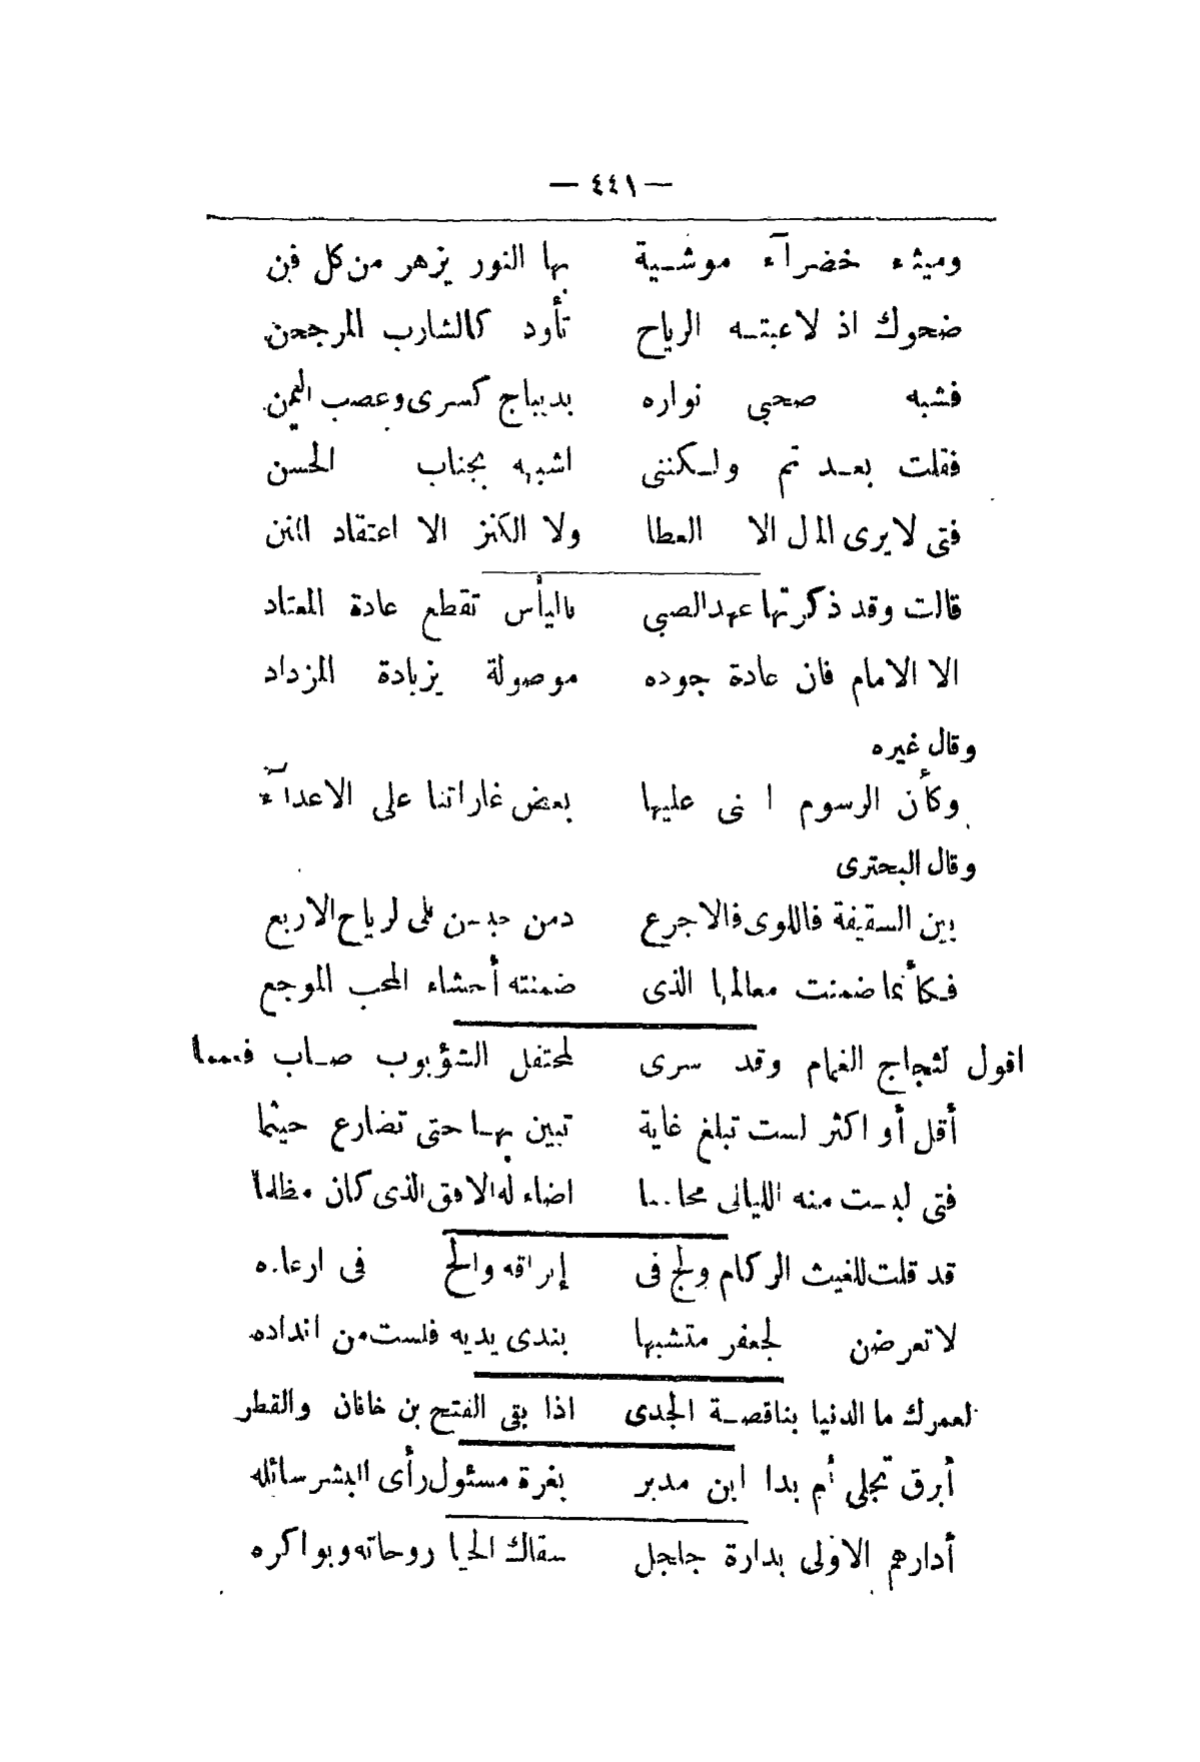 — ٤٤١ —
وميثاء خضرآء موشية بها النور يزهر من كل فن
ضحوك اذ لاعبته الرياح تأود كالشارب المرجحن
فشبه صحبي نواره بديباج كسرى وعصب اليمن
فقلت بعد تم ولكنني اشبهه بجناب الحسن
فتى لا يرى المال الا العطا ولا الكنز الا اعتقاد المنن
قالت وقد ذكرتها عهد الصبي باليأس تقطع عادة المعتاد
الا الامام فان عادة جوده موصولة بزيادة المزداد
وقال غيره
وكأن الرسوم ا نى عليها بعض غاراتنا على الاعدآء
وقال البحترى
بين السقيفة فاللوى فالاجرع دمن حبسن على لرياح الاربع
فكأنما ضمنت معالمها الذى ضمنته أحشاء المحب الموجع
اقول لثجاج الغمام وقد سرى لمحتفل الشؤبوب صاب فعمما
أقل أو اكثر لست تبلغ غاية تبين بها حتى تضارع حيثما
فتى لبست منه الليالى محاسنا اضاء له الافق الذى كان مظلما
قد قلت للغيث الركام ولج فى إبراقه والح فى ارعاده
لا تعرضن لجعفر متشبها بندى يديه فلست من انداده
لعمرك ما الدنيا بناقصة الجدى اذا بقى الفتح بن خاقان والقطر
أبرق تجلى أم بدا ابن مدبر بغرة مسئول رأى البشر سائله
أدارهم الاولى بدارة جلجل سقاك الحيا روحاته وبواكره